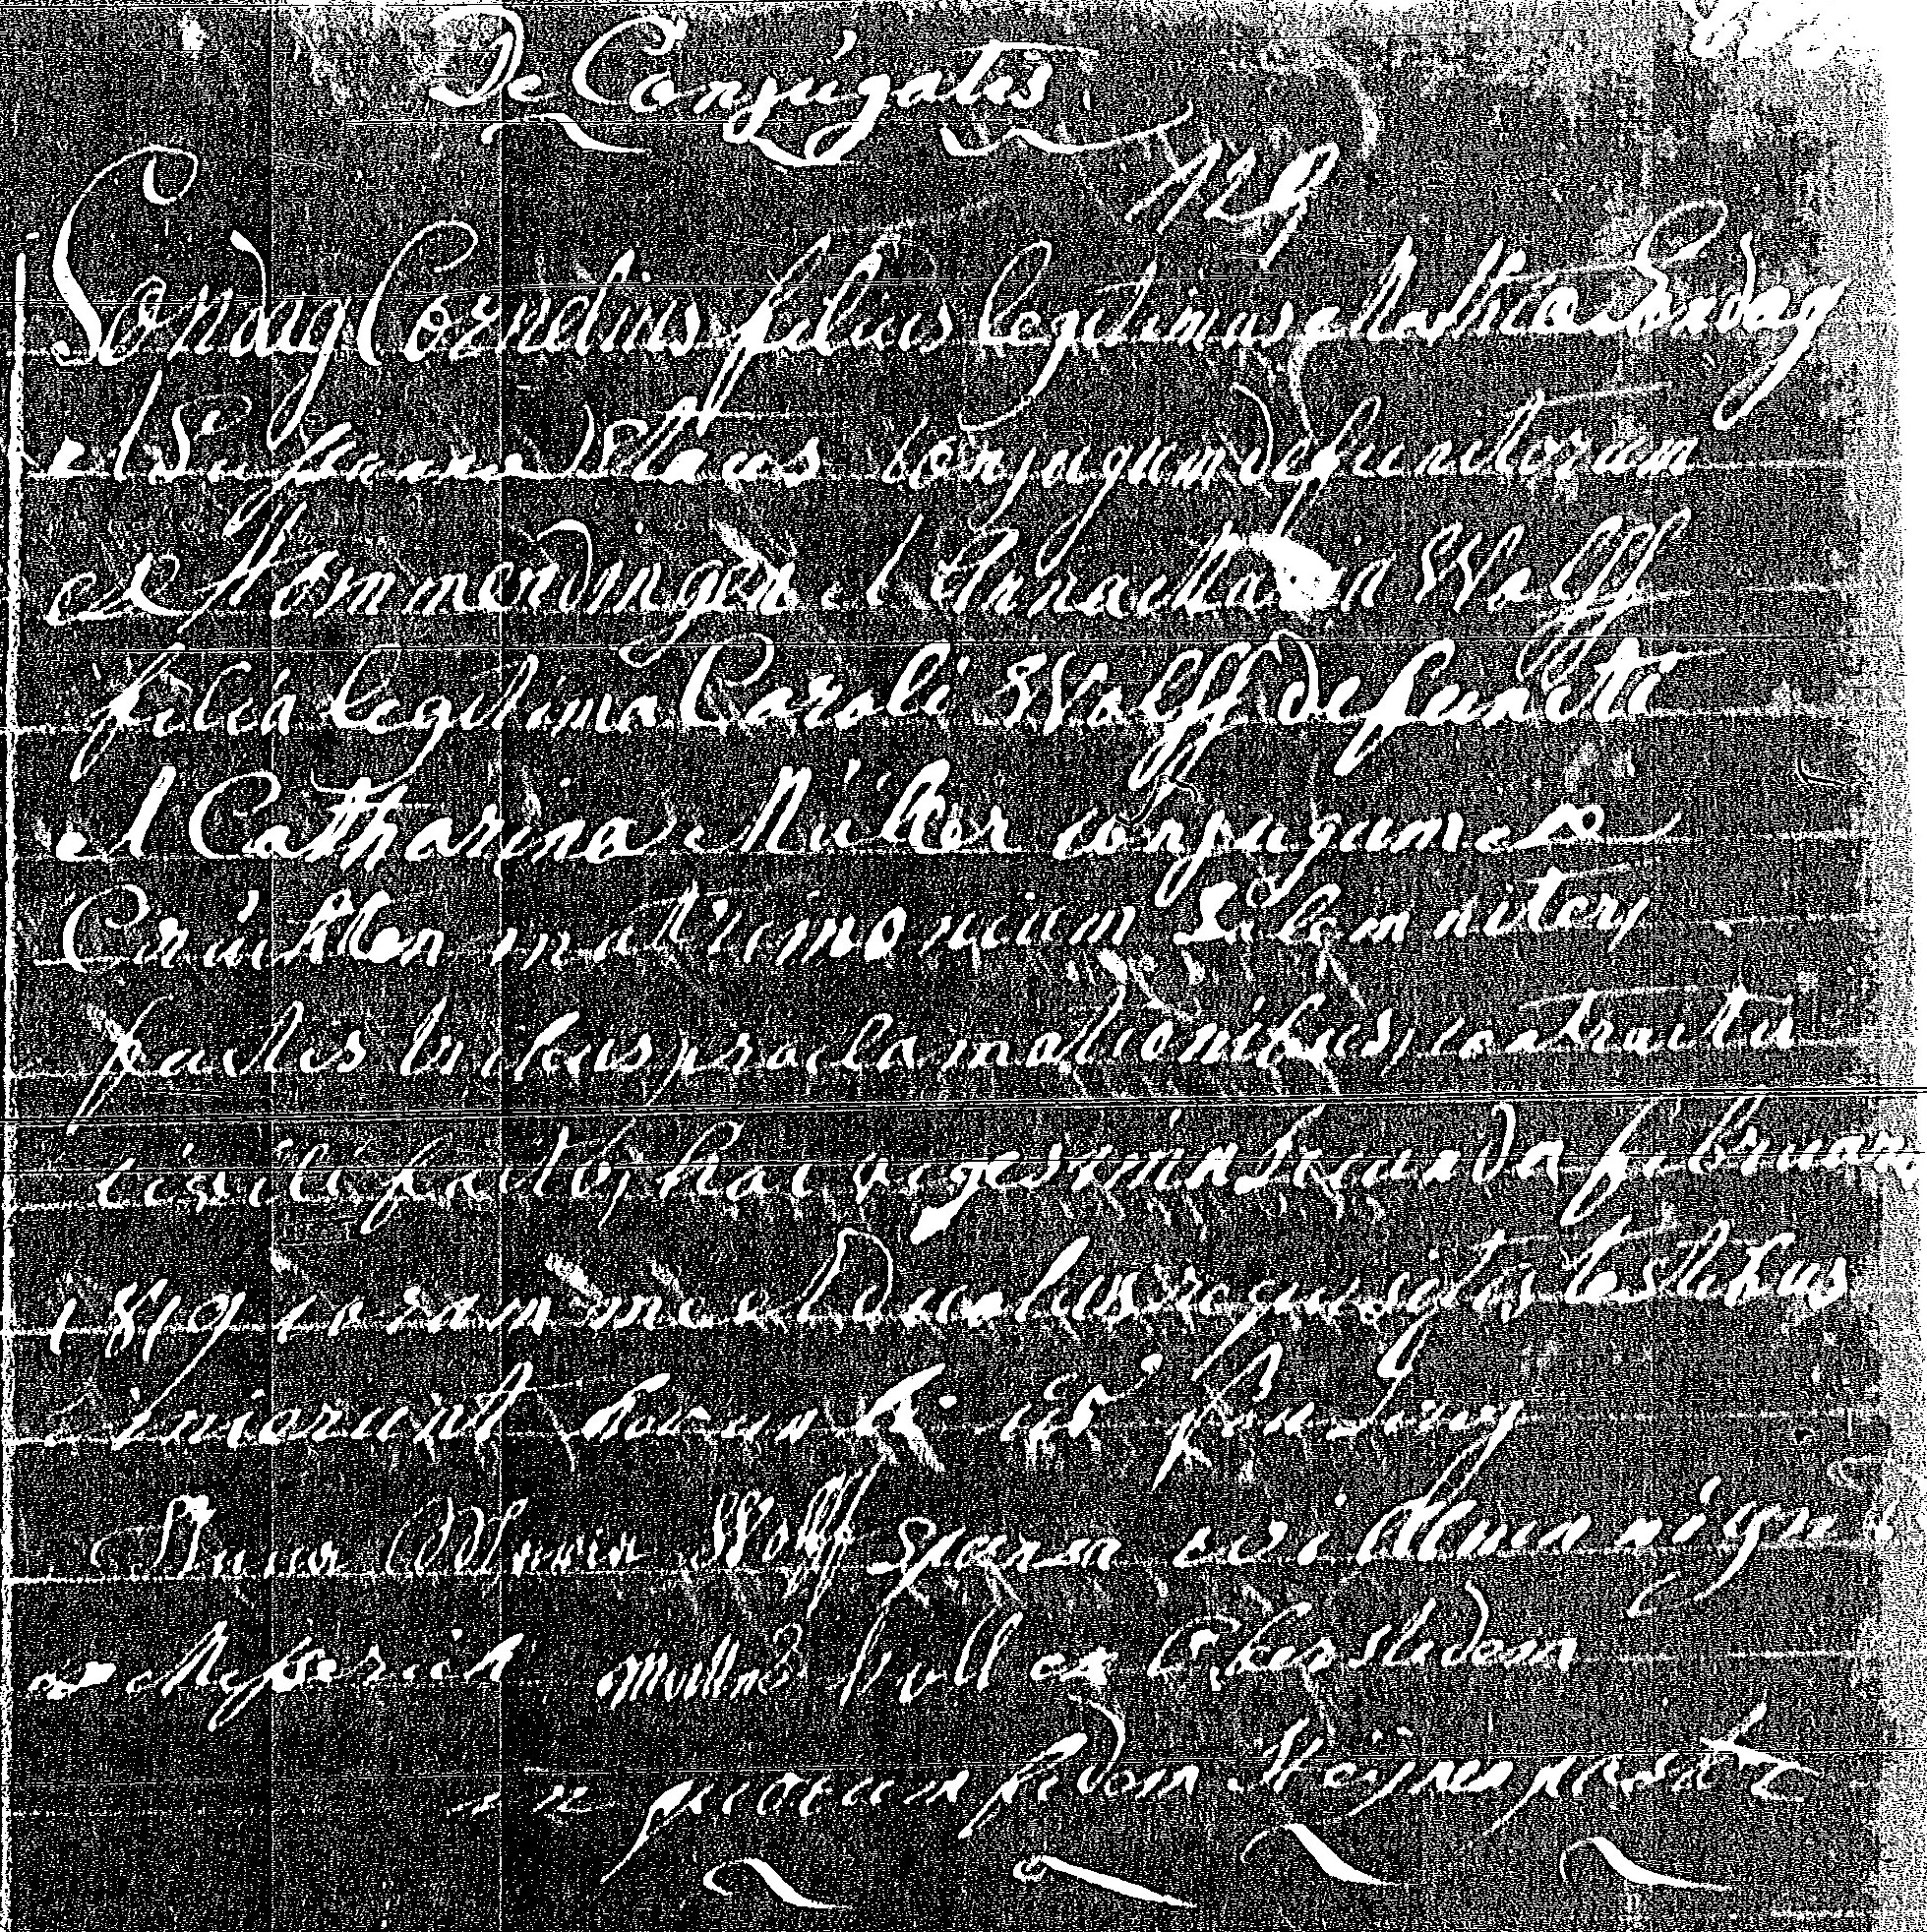 De Conjugatis.
129
Sondag Cornelius filius legitimus Mathia Sondag
et Susanna Klaus conjugum defunctorum
ex Kommendingen et Anna Maria Wolff
filia legitima Caroli Wolff defuncti
et Catharina Müller conjugum ex
Cruchten matrimonium solemniter
factis tribus proclamationibus, contractu
civili facto, hac vigesima secunda februarii
1819 coram me et duobus requisitis testibus
inierunt
Anna Maria Wolff sponsa
ex ex
in quorum fidem